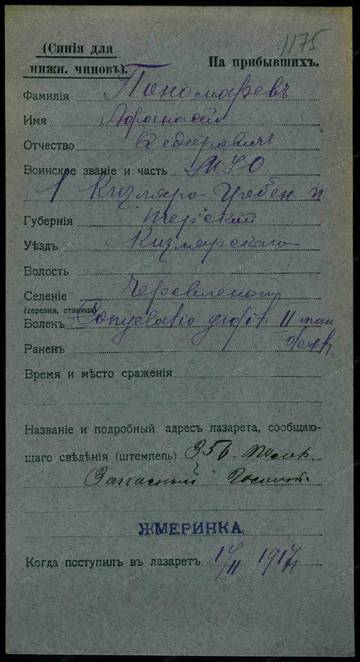 1175
(Синія для
нижн. чиновъ).
На прибывшихъ.
Фамилія Пономаревъ
Имя Афанасій
Отчество
Воинское званіе и часть
1 Кизляро Гребен п
Губернія Терской
Уѣздъ Кизлярскаго
Волость
Селеніе Червленой
(деревня, станица)
Боленъ
Раненъ
Время и мѣсто сраженія
Названіе и подробный адресъ лазарета, сообщаю-
щаго свѣдѣнія (штемпель) 356
Запасный Госпит.
ЖМЕРИНКА
Когда поступилъ въ лазаретъ 1917